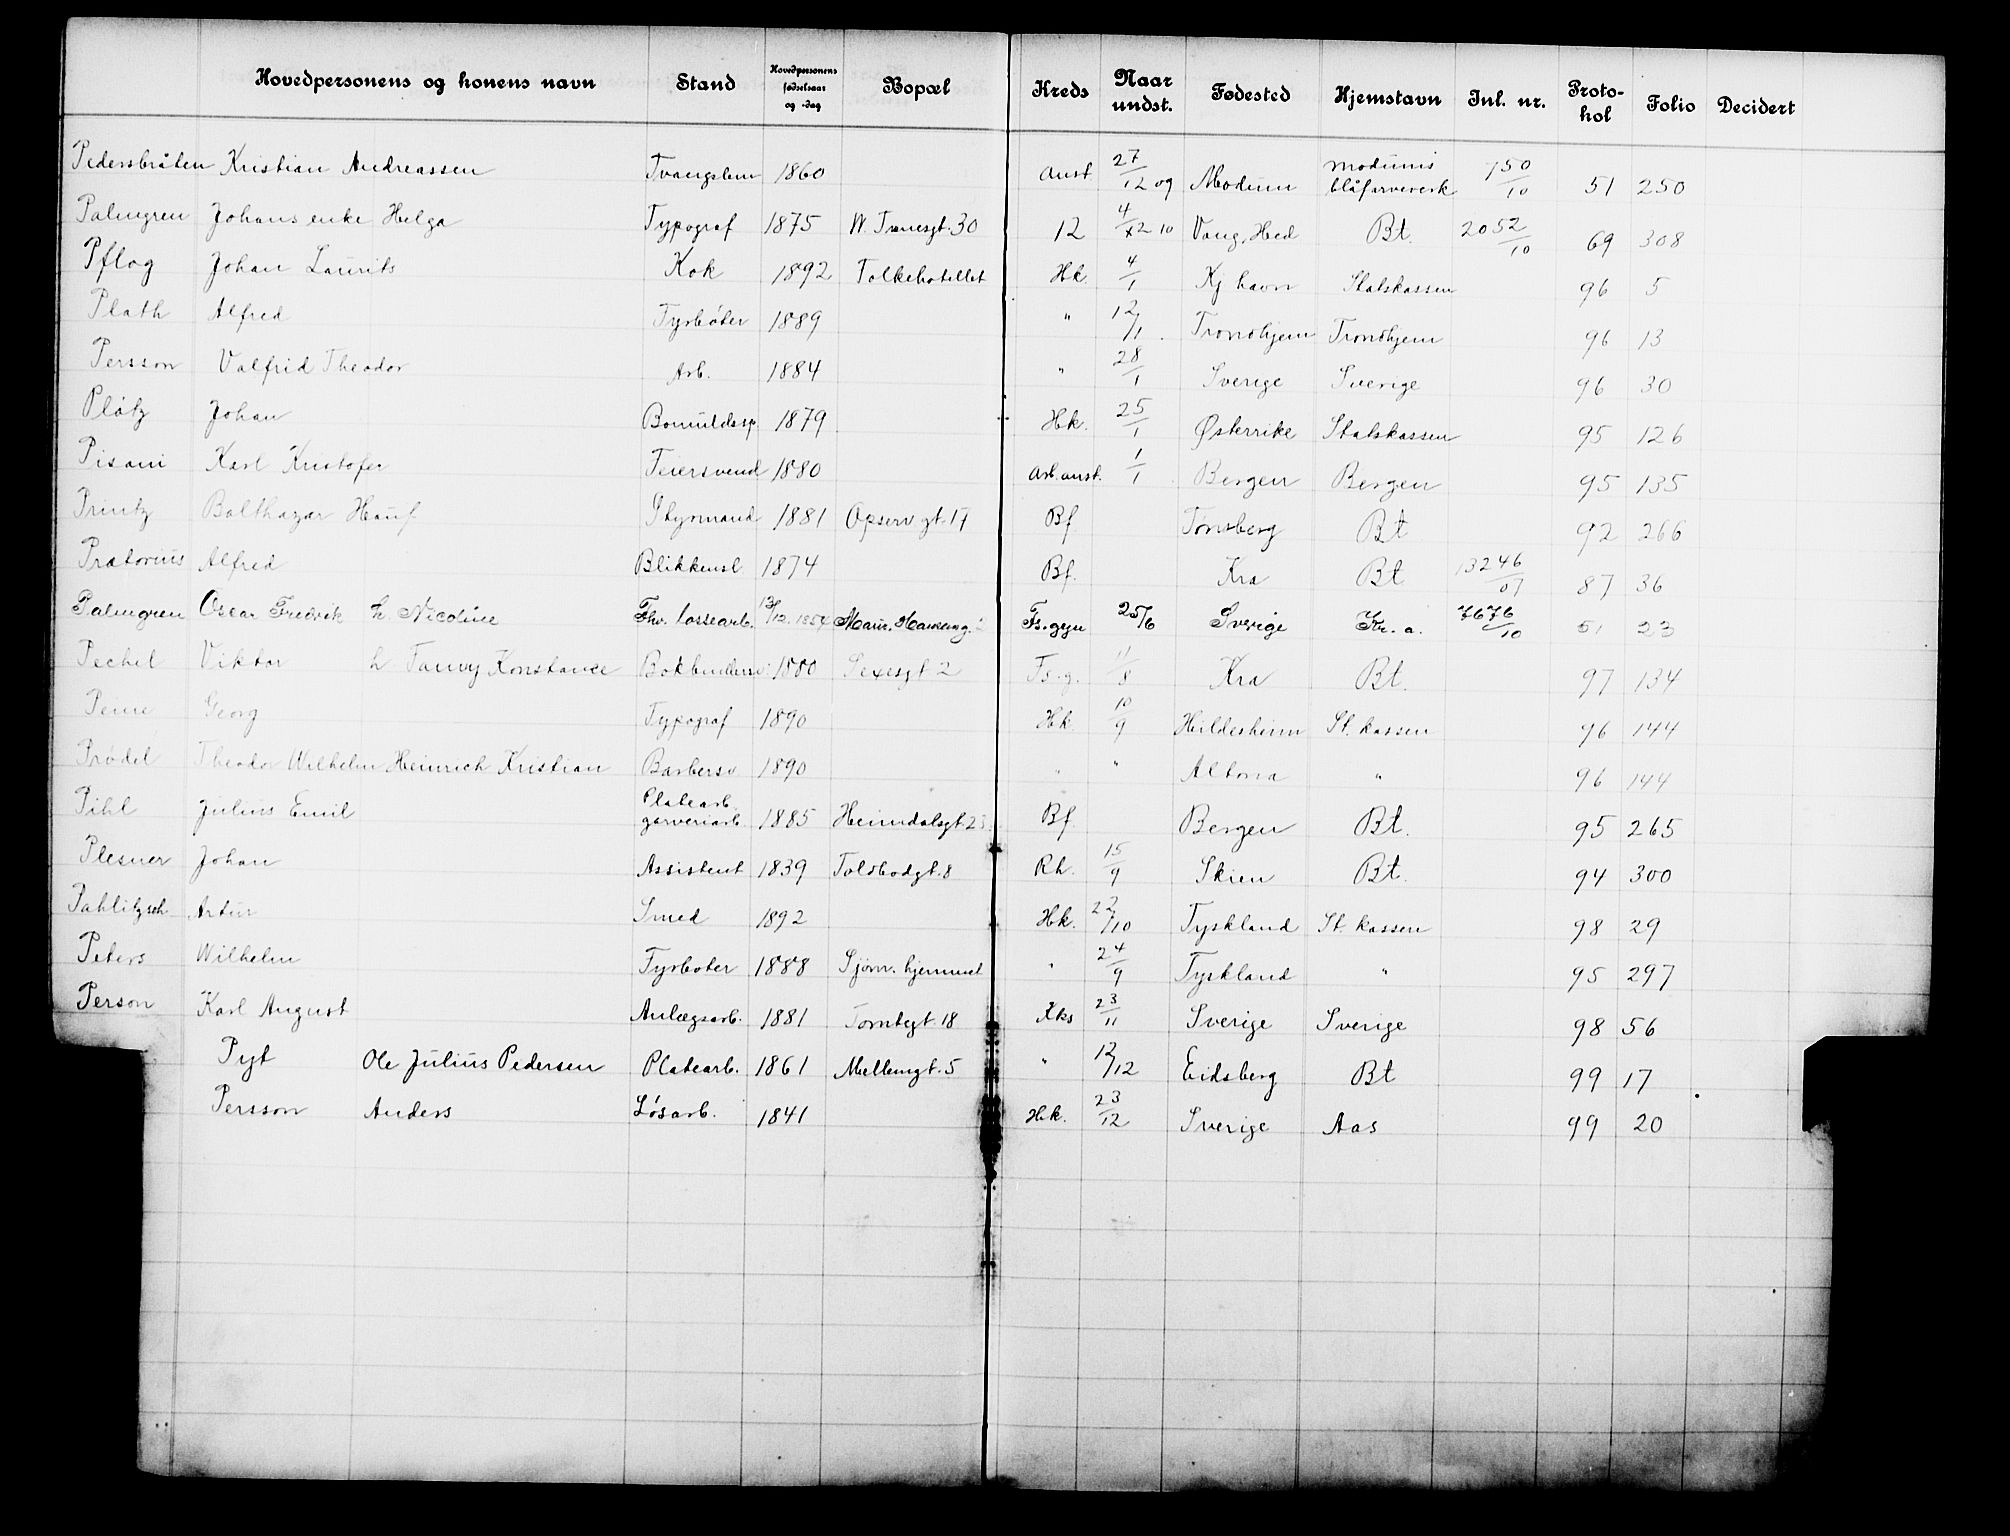 Hovedpersonens og konens navn Stand Hovedpersonens fødselsaar og -dag Bopæl Kreds Naar undst. Fødested Hjemstavn Inl. nr. Protokol Folio Decidert
Pedersbråten Kristian Andreassen Tvangslem 1860 Anst 27/12 09 Modum Modums blåfarveverk 750/10 51 250
Palmgren Johans enke Helga Typograf 1875 W. Tranesgt. 30 12 4/12 10 Vang, Hed Bt. 2052/10 69 308
Pflog Johan Laurits Kok 1892 Folkehotellet Hk. 4/1 Kj havn Statskassen 96 5
Plath Alfred Fyrbøter 1889 " 12/1 Trondhjem Trondhjem 96 13
Persson Valfrid Theodor Arb. 1884 " 28/1 Sverige Sverige 96 30
Plötz Johan Bomuldssp. 1879 Hk. 25/1 Østerrike Statskassen 95 126
Pisani Karl Kristofer Feiersvend 1880 Arb.anst. 1/1 Bergen Bergen 95 135
Printz Balthazar Hauf Styrmand 1881 Opserv gt. 17 Bf Tønsberg Bt 92 266
Prætorius Alfred Blikkensl. 1874 Bf. Kra Bt 13246/07 87 36
Palmgren Oscar Fredrik h. Nicoline Fhv. lossearb. 13/12. 1854 Maur. Hanseng. 2 Fs.gyn 25/6 Sverige Kr.a. 7676/10 51 23
Pechel Viktor h Fanny Konstance Bokbindersv. 1880 Sexesgt 2 Fs.g. 11/8 Kra Bt. 97 134
Peine Georg Typograf 1890 Hk. 10/9 Hildesheim St. kassen 96 144
Prödel Theodor Wilhelm Heinrich Kristian Barbersv 1890 " " Altona " 96 144
Pihl Julius Emil Platearb. garveriarb. 1885 Heimdalsgt. 23 Bf Bergen Bt. 95 265
Plesner Johan Assistent 1839 Toldbodgt. 8 Rh. 15/9 Skien Bt. 94 300
Pahlitzsch Artur Smed 1892 Hk. 22/10 Tyskland St. kassen 98 29
Peters Wilhelm Fyrbøter 1888 Sjøm. hjemmet " 24/9 Tyskland " 95 297
Person Karl August Anlægsarb. 1881 Tomtegt. 18 Kks 23/11 Sverige Sverige 98 56
Pyt Ole Julius Pedersen Platearb. 1861 Mellemgt. 5 " 12/12 Eidsberg Bt 99 17
Persson Anders Løsarb. 1841 Hk. 23/12 Sverige Aas 99 20